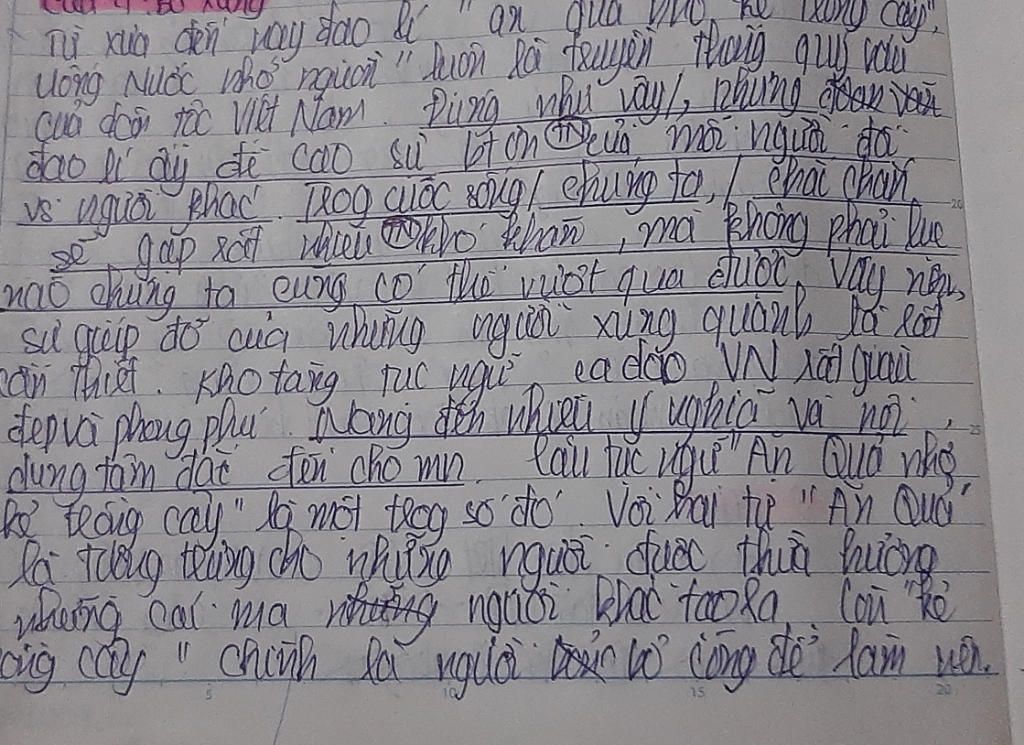 Câu 4: Bổ xung
Từ xưa đến nay đạo lí "ăn quả nhớ kẻ trồng cây",
Uống Nước nhớ nguồn" luôn là truyền thống quý báu
của dân tộc Việt Nam. Đúng như vậy/, những
đạo lí ấy đề cao sự bt ơn của mỗi người đối
vs người khác. Trog cuộc sống/ chúng ta,/ chắc chắn
sẽ gặp rất nhiều khó khăn, mà không phải lúc
nào chúng ta cũng có thể vượt qua được. Vậy nên,
sự giúp đỡ của những người xung quành là rất
cần thiết. Kho tàng tục ngữ, ca dao VN rất giàu
đẹp và phong phú. Mang đến nhiều ý nghĩa và nội
dung tâm đắc đến cho mn. Câu tục ngữ "Ăn Quả nhớ
kẻ trồng cây" là một trog số đó. Với hai từ "Ăn Quả"
là tượng trưng cho những người được thừa hưởng
những cái mà những người khác tạo ra. Còn "kẻ
ồng cây" chính là người bỏ công để làm nên.
5 10 15 20
20
25